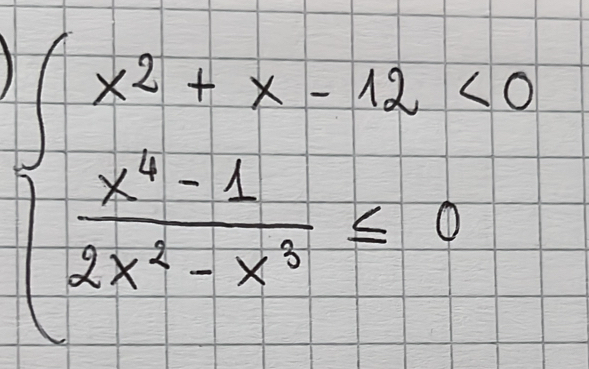 ) { x² + x - 12 < 0
x⁴ - 1
2x² - x³ ≤ 0